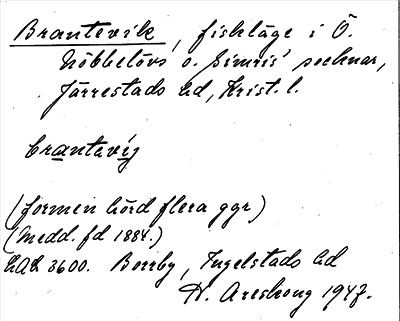 Brantevik, fiskläge i Ö.
Nöbbelövs o. Simris' socknar,
Järrestads hd, Krist. l.
brantevig
(formen hörd flera ggr)
(Medd. fd 1884.)
LAL 3600. Borrby, Ingelstads hd
H. Areskoug 1947.